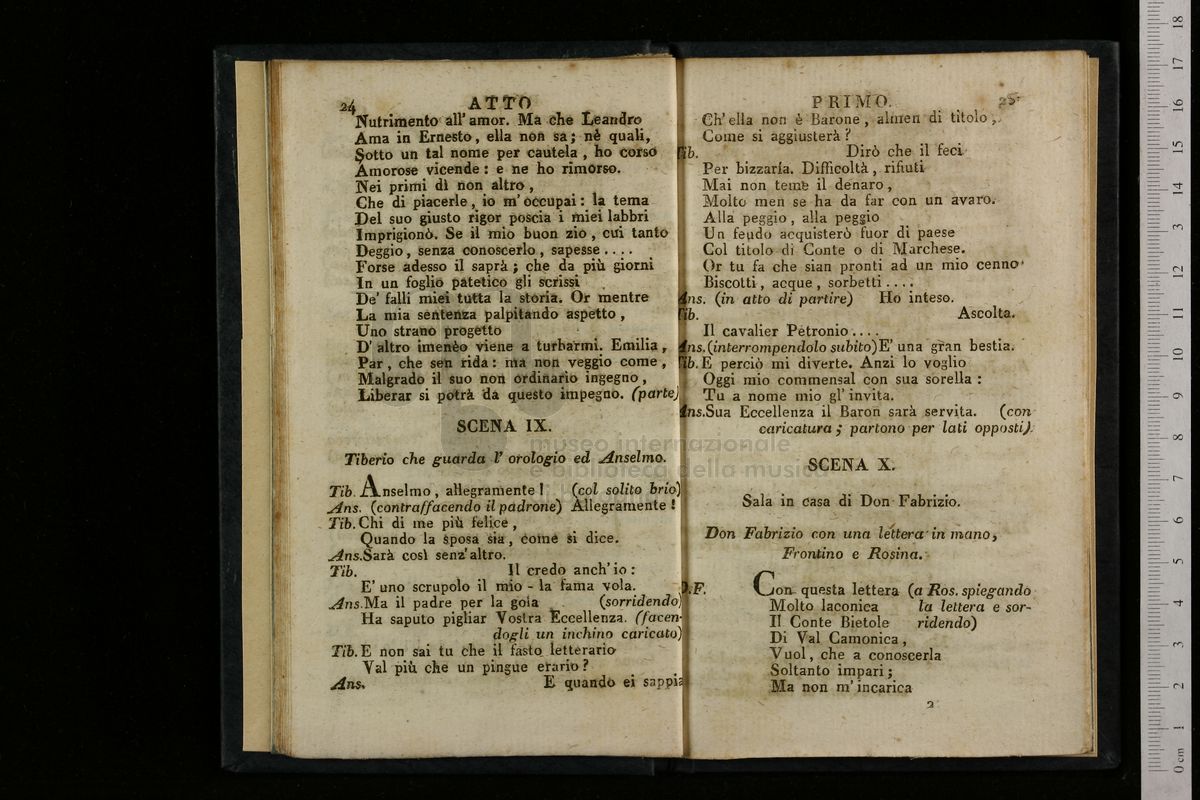 24 ATTO
Nutrimento all' amor. Ma che Leandro
Ama in Ernesto, ella non sa; nè quali,
Sotto un tal nome per cautela, ho corso
Amorose vicende: e ne ho rimorso.
Nei primi dì non altro,
Che di piacerle, io m' occupai: la tema
Del suo giusto rigor poscia i miei labbri
Imprigionò. Se il mio buon zio, cui tanto
Deggio, senza conoscerlo, sapesse....
Forse adesso il saprà; che da più giorni
In un foglio patetico gli scrissi
De' falli miei tutta la storia. Or mentre
La mia sentenza palpitando aspetto,
Uno strano progetto
D' altro imenèo viene a turbarmi. Emilia,
Par, che sen rida: ma non veggio come,
Malgrado il suo non ordinario ingegno,
Liberar si potrà da questo impegno. (parte)
SCENA IX.
Tiberio che guarda l' orologio ed Anselmo.
Tib. Anselmo, allegramente! (col solito brio)
Ans. (contraffacendo il padrone) Allegramente!
Tib. Chi di me più felice,
Quando la sposa sia, come si dice.
Ans. Sarà così senz' altro.
Tib. Il credo anch' io:
E' uno scrupolo il mio - la fama vola.
Ans. Ma il padre per la gola (sorridendo)
Ha saputo pigliar Vostra Eccellenza. (facen-
dogli un inchino caricato)
Tib. E non sai tu che il fasto letterario
Val più che un pingue erario?
Ans. E quando ei sappia
PRIMO. 25
Ch' ella non è Barone, almen di titolo,
Come si aggiusterà?
Tib. Dirò che il feci
Per bizzarìa. Difficoltà, rifiuti
Mai non teme il denaro,
Molto men se ha da far con un avaro.
Alla peggio, alla peggio
Un feudo acquisterò fuor di paese
Col titolo di Conte o di Marchese.
Or tu fa che sian pronti ad un mio cenno
Biscotti, acque, sorbetti....
Ans. (in atto di partire) Ho inteso.
Tib. Ascolta.
Il cavalier Petronio....
Ans. (interrompendolo subito) E' una gran bestia.
Tib. E perciò mi diverte. Anzi lo voglio
Oggi mio commensal con sua sorella:
Tu a nome mio gl' invita.
Ans. Sua Eccellenza il Baron sarà servita. (con
caricatura; partono per lati opposti)
SCENA X.
Sala in casa di Don Fabrizio.
Don Fabrizio con una lettera in mano,
Frontino e Rosina.
D.F. Con questa lettera (a Ros. spiegando
Molto laconica la lettera e sor-
Il Conte Bietole ridendo)
Di Val Camonica,
Vuol, che a conoscerla
Soltanto impari;
Ma non m' incarica
2
museo internazionale
e biblioteca della musica
0 cm 1 2 3 4 5 6 7 8 9 10 11 12 13 14 15 16 17 18